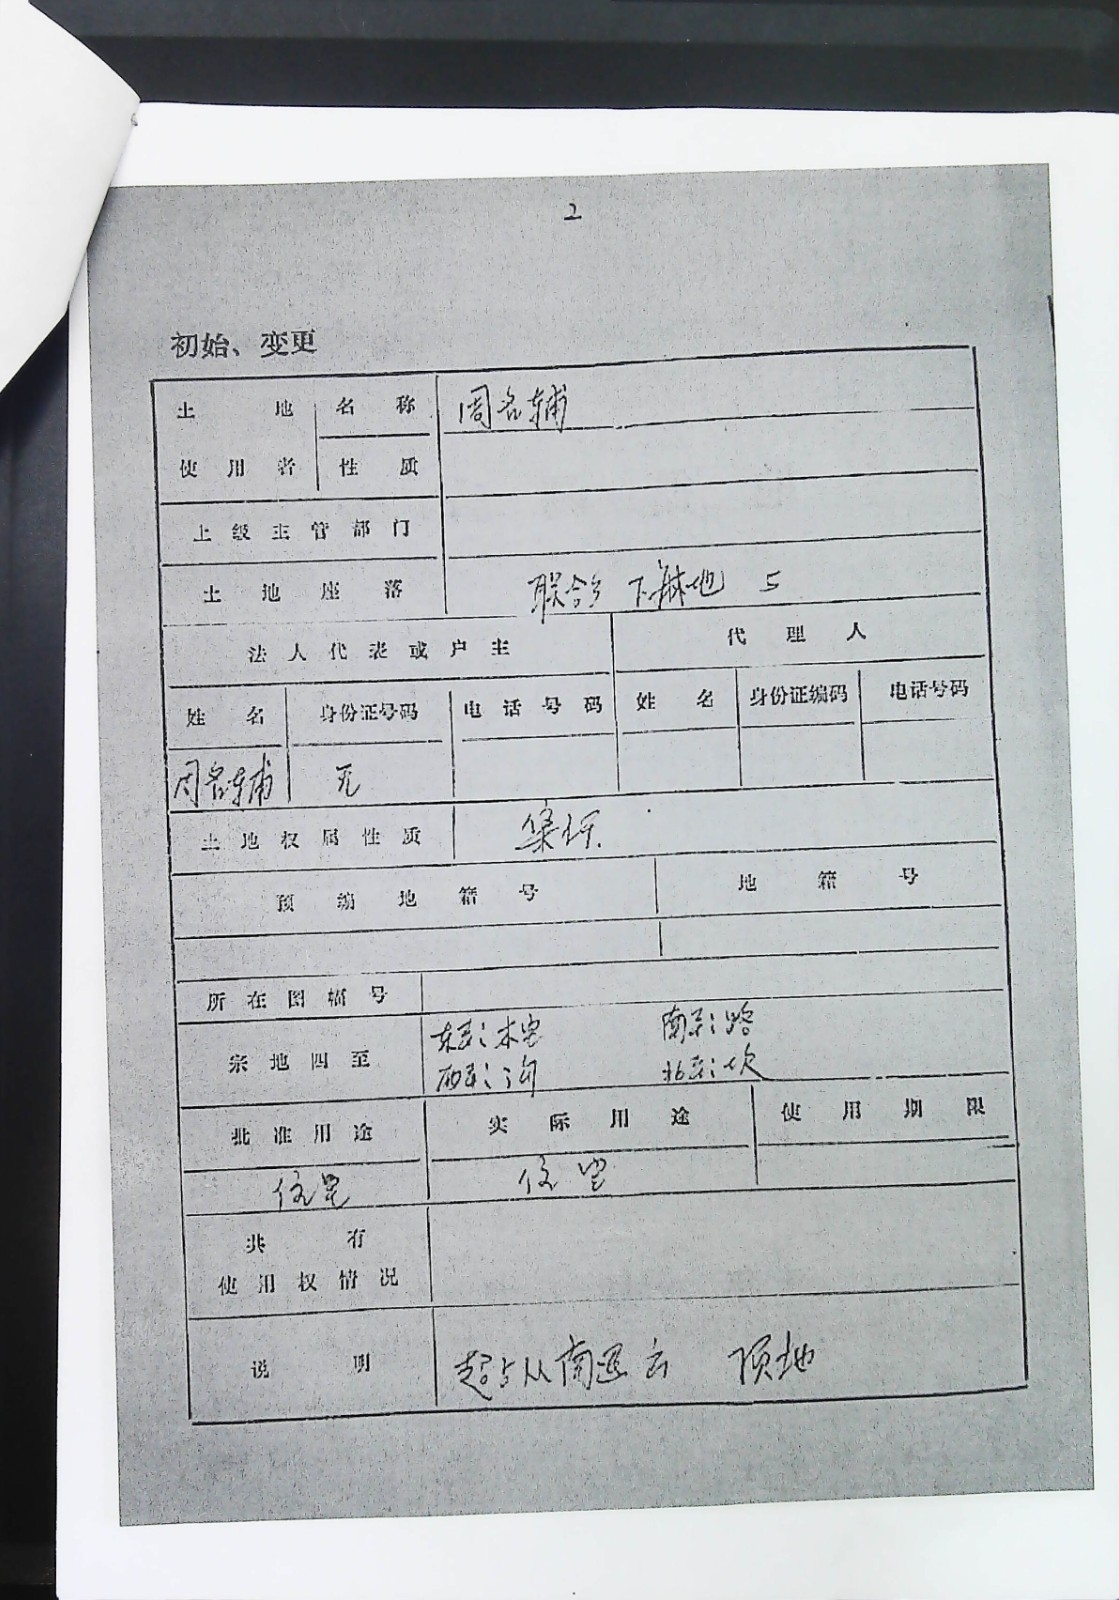 2
初始、变更
土地 名称 周名辅
使用者 性质
上级主管部门
土地座落 联合乡 下麻地 5
法人代表或户主 代理人
姓名 身份证号码 电话号码 姓名 身份证编码 电话号码
周名辅 无
土地权属性质 集体
预编地籍号 地籍号
所在图幅号
宗地四至 东至:本宅 南至:路
西至:沟 北至:坎
批准用途 实际用途 使用期限
住宅 住宅
共有
使用权情况
说明 超占从南退去 顶地